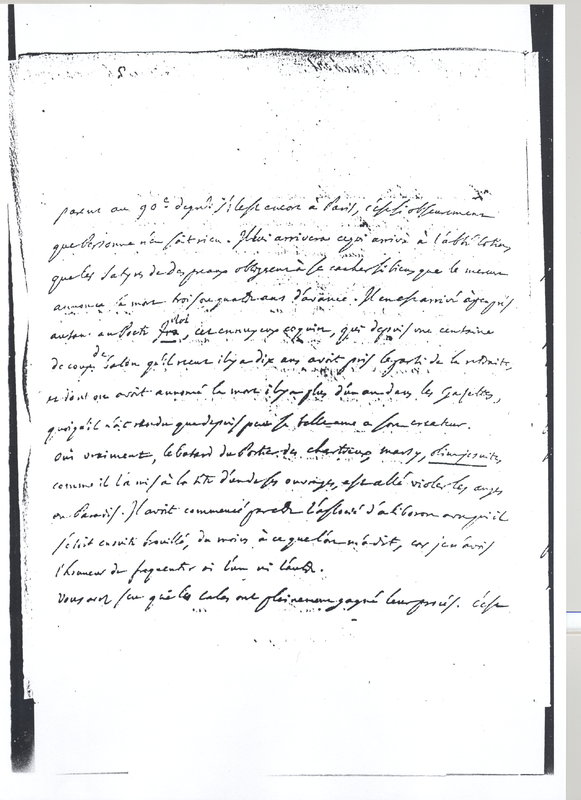 parent au 90e degré s'il est encor à Paris, c'est si obscurement
que Personne n'en sait rien. Il lui arrivera ce qui arriva à l'abbé Cotin,
que les Satyres de Despreaux obligerent à se cacher si bien que le mercure
annonça sa mort trois ou quatre ans d'avance. Il en est arrivé à peu près
autant au Poete Roi, cet ennuyeux coquin, qui depuis une centaine
de coups de baton qu'il reçut il y a dix ans avoit pris le parti de la retraite,
et dont on avoit annoncé la mort il y a plus d'un an dans les Gazettes,
quoiqu'il n'ait rendu que depuis peu sa belle ame à son createur.
Oui vraiment, le batard du Portier des chartreux marsy, olim jesuite,
comme il l'a mis à la tête d'un de ses ouvrages, est allé violer les anges
en Paradis. Il avoit commencé par être l'associé d'aliboron avec qui il
s'étoit ensuite brouillé, du moins à ce que l'on m'a dit, car je n'avois
l'honneur de frequenter ni l'un ni l'autre.
Vous avez sçu que les Calas ont pleinement gagné leur procès. c'est